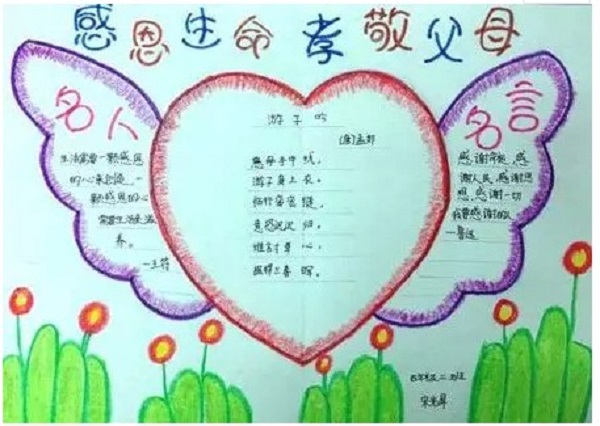 感恩生命 孝敬父母
名人
生活需要一颗感恩
的心来创造,一
颗感恩的心
需要生活来滋
养。
—王符
游子吟
(唐)孟郊
慈母手中线,
游子身上衣。
临行密密缝,
意恐迟迟归,
谁言寸草心,
报得三春晖。
名言
感谢命运,感
谢人民,感谢思
想,感谢一切
我要感谢的人
—鲁迅
四年级二班